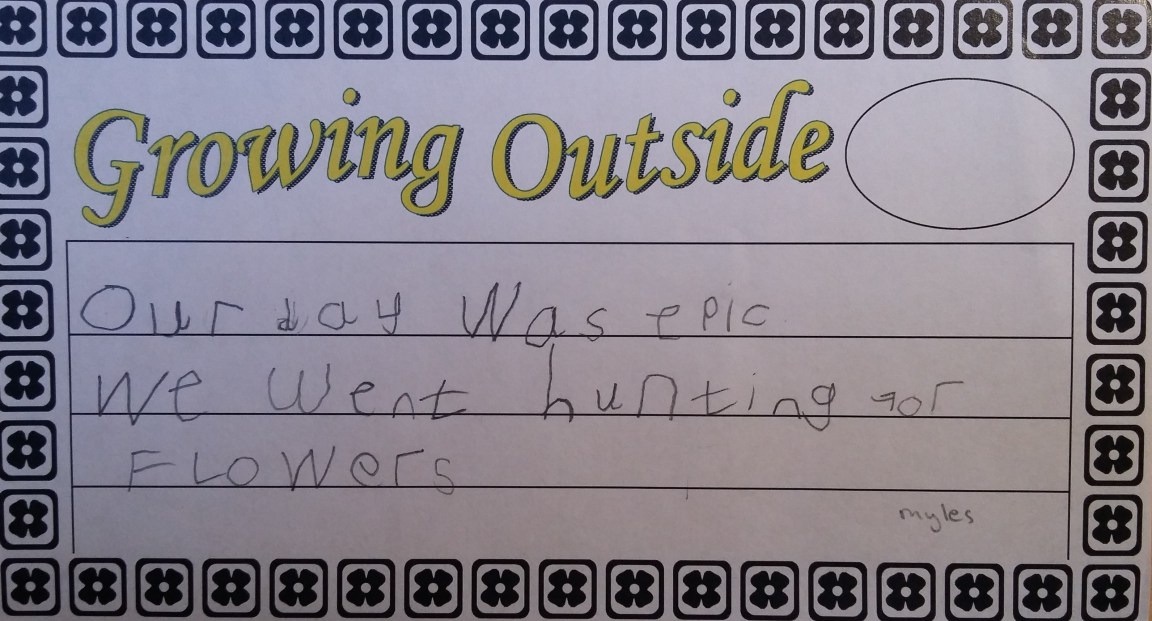 Growing Outside
Our day Was epic
We Went hunting for
FLOWers
myles